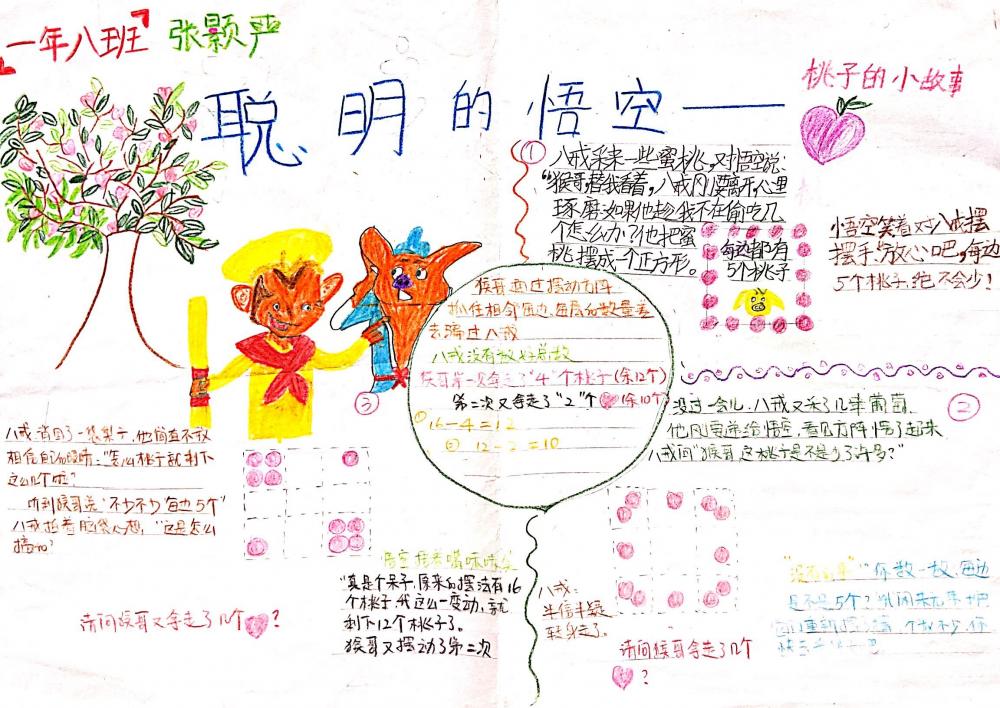 一年八班 张颢严
聪明的悟空——
桃子的小故事
①
八戒采来一些蜜桃，又对悟空说：
“猴哥，替我看着，八戒刚要离开心里
琢磨：如果他趁我不在偷吃几
个怎么办？他把蜜
桃摆成一个正方形。
每边都有
5个桃子
悟空笑着对八戒摆
摆手：放心吧，每边
5个桃子，绝不会少！
②
没过一会儿，八戒又采了几串葡萄，
他刚要递给悟空，看见方阵愣了起来，
八戒问“猴哥，这桃子是不是少了许多？”
“你数一数，每边
是不是5个？
八戒：
半信半疑
转身走了。
请问猴哥拿走了几个
？
③
八戒
他简直不敢
相信自己的眼睛：“怎么桃子就剩下
这么几个啦？
听到猴哥说“不少不少每边5个”
八戒拍着脑袋心想，“这是怎么
搞的？
请问猴哥又拿走了几个
？
悟空捂着嘴咪咪笑
“真是个呆子，原来的摆法有16
个桃子，我这么一变动，就
剩下12个桃子了。
猴哥又摆动了第二次
猴哥通过摆动方阵
抓住相邻两边
去骗过八戒
八戒没有
猴哥第一次拿走了“4”个桃子（余12个）
第二次又拿走了“2”个（余10个）
①16-4=12
②12-2=10